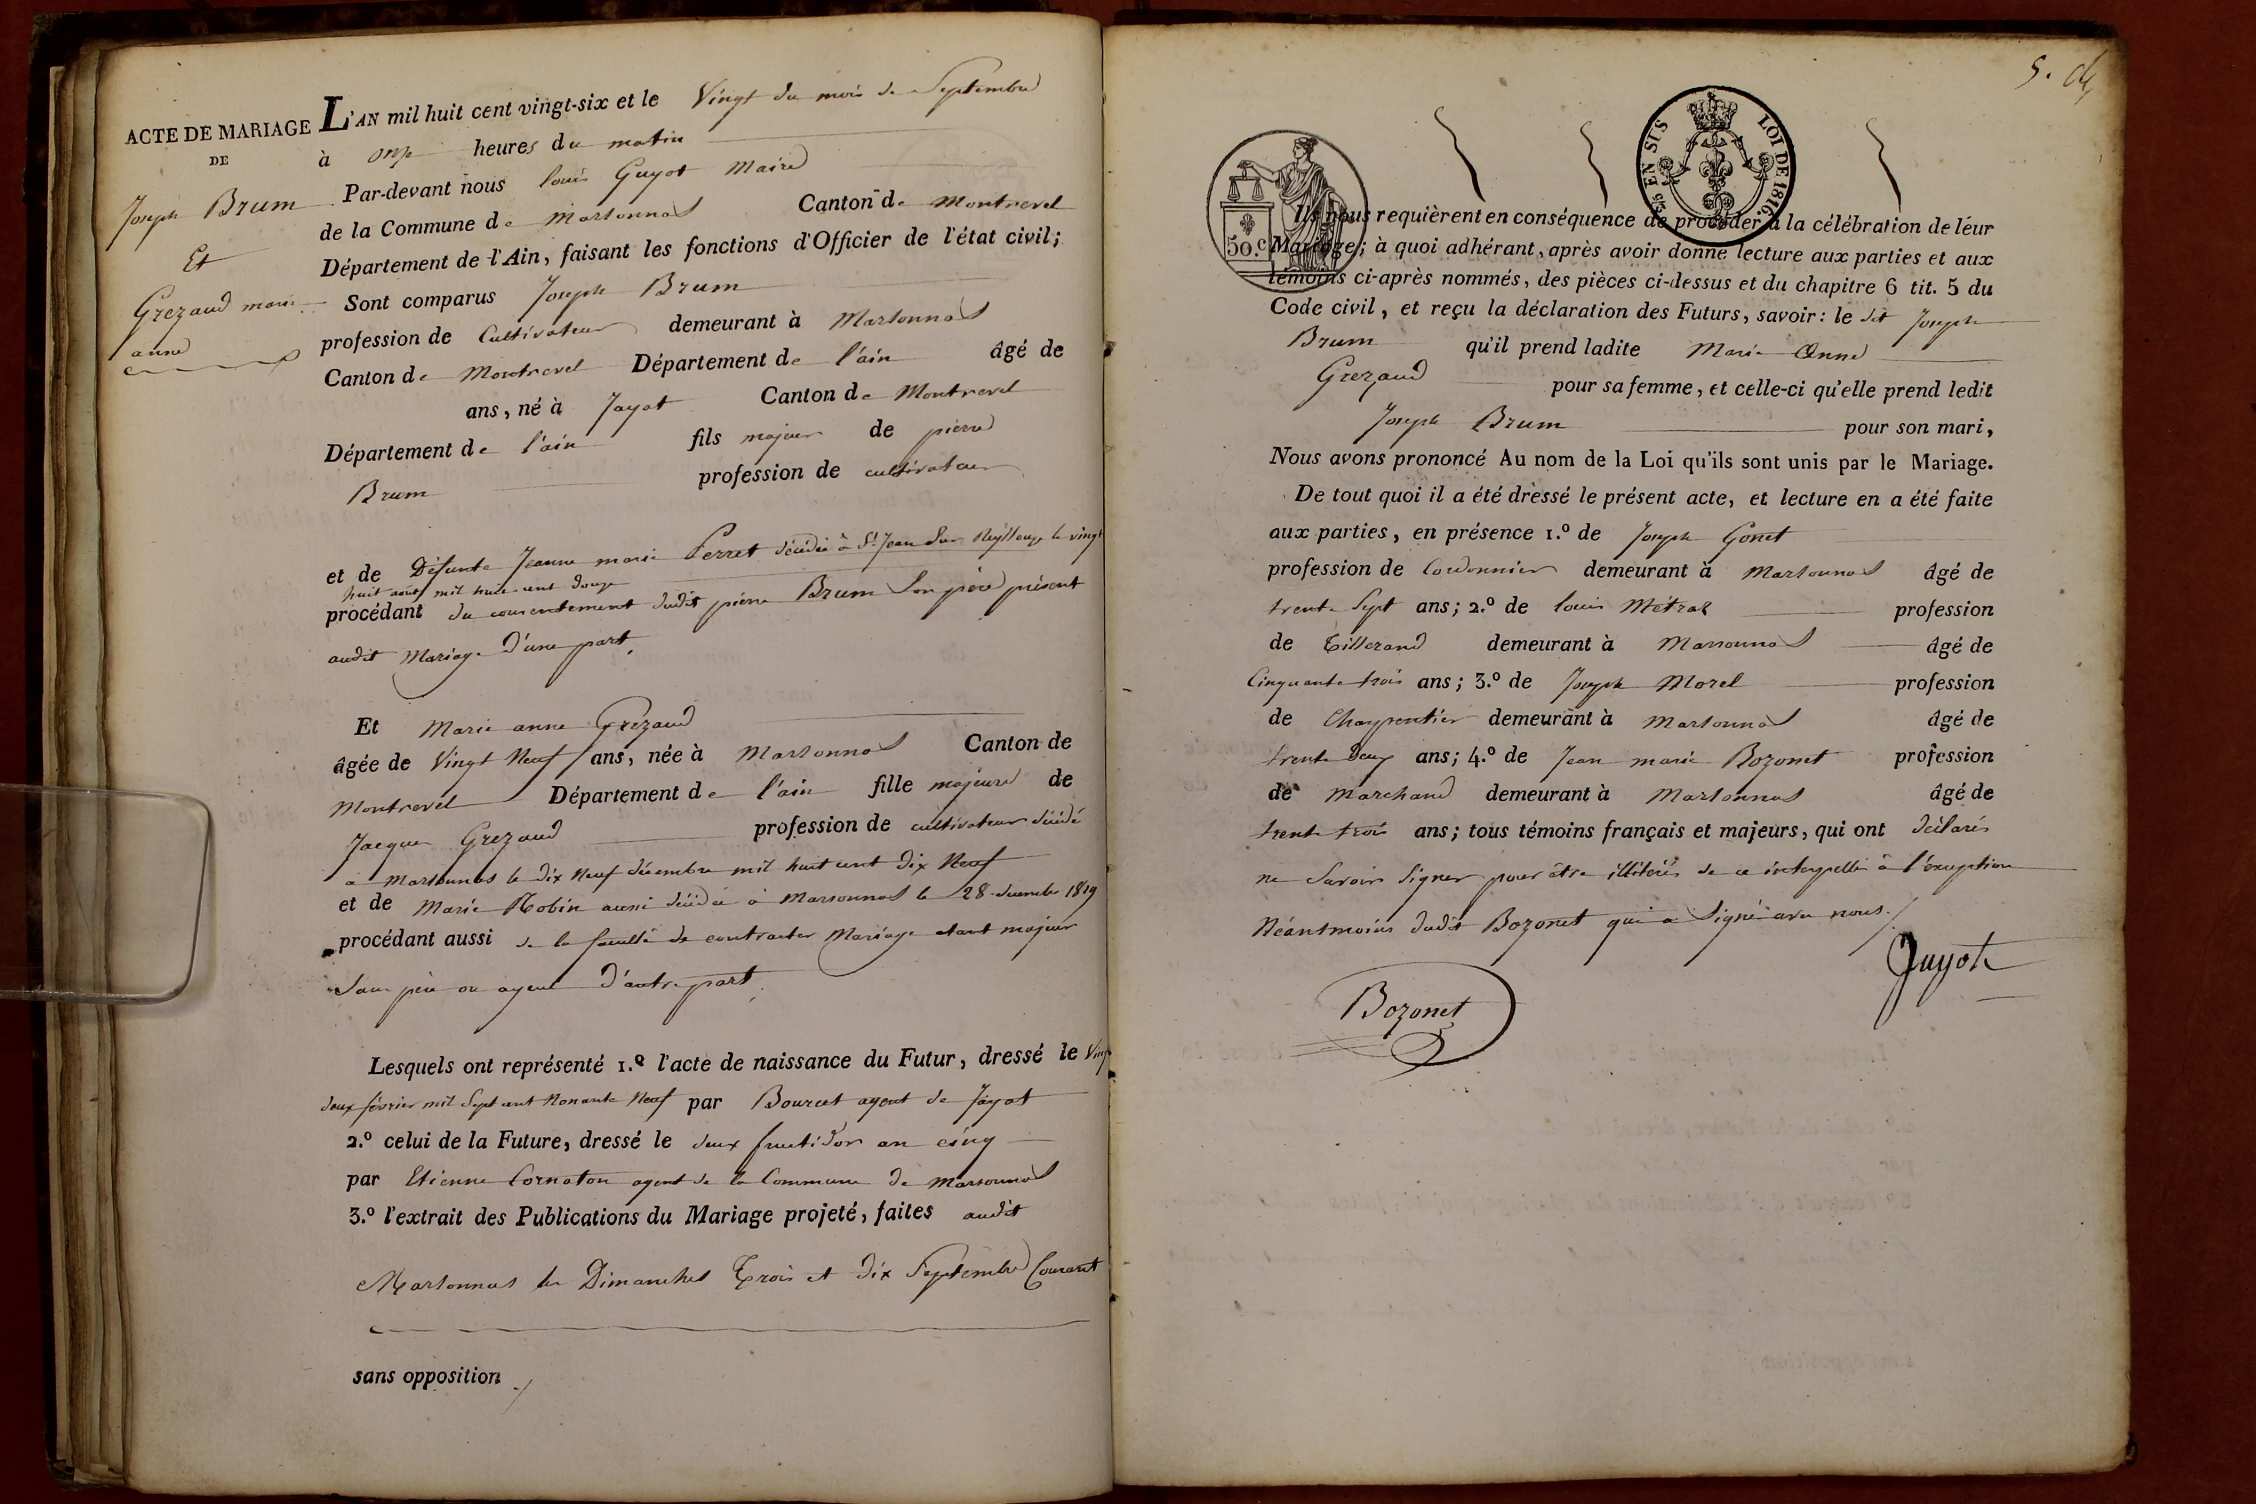 ACTE DE MARIAGE
DE
Joseph Brum
Et
Grezaud marie
anne
L'AN mil huit cent vingt-six et le Vingt du mois de Septembre
à onze heures du matin
Par-devant nous louis Guyot Maire
de la Commune de Marsonnas Canton de Montrevel
Département de l'Ain, faisant les fonctions d'Officier de l'état civil;
Sont comparus Joseph Brum
profession de Cultivateur demeurant à Marsonnas
Canton de Montrevel Département de l'ain âgé de
ans, né à Jayat Canton de Montrevel
Département de l'ain fils majeur de pierre
Brum profession de cultivateur
et de Défunte Jeanne marie Perret décédée à St Jean Sur Reyssouze le vingt
huit août mil huit cent douze
procédant du consentement dudit pierre Brum Son père présent
audit Mariage D'une part
Et Marie anne Grezaud
âgée de Vingt Neuf ans, née à Marsonnas Canton de
Montrevel Département de l'ain fille majeure de
Jacques Grezaud profession de cultivateur décédé
à Marsonnas le dix Neuf décembre mil huit cent dix Neuf
et de Marie Robin aussi décédée à Marsonnas le 28 décembre 1819
procédant aussi de la faculté de contracter Mariage étant majeur
Sans père ou ayeul D'autre part
Lesquels ont représenté 1.º l'acte de naissance du Futur, dressé le Vingt
deux février mil Sept cent Nonante Neuf par Bourcet agent de Jayat
2.º celui de la Future, dressé le deux fructidor an cinq
par Etienne Cornaton agent de la Commune de Marsonnas
3.º l'extrait des Publications du Mariage projeté, faites audit
Marsonnas les Dimanches Trois et dix Septembre Courant
sans opposition
5.
ES EN SIS LOI DE 1816.
50.c
Ils nous requièrent en conséquence de procéder à la célébration de leur
Mariage; à quoi adhérant, après avoir donné lecture aux parties et aux
témoins ci-après nommés, des pièces ci-dessus et du chapitre 6 tit. 5 du
Code civil, et reçu la déclaration des Futurs, savoir: le dit Joseph
Brum qu'il prend ladite Marie Anne
Grezaud pour sa femme, et celle-ci qu'elle prend ledit
Joseph Brum pour son mari,
Nous avons prononcé Au nom de la Loi qu'ils sont unis par le Mariage.
De tout quoi il a été dressé le présent acte, et lecture en a été faite
aux parties, en présence 1.º de Joseph Gonet
profession de Cordonnier demeurant à Marsonnas âgé de
trente Sept ans; 2.º de louis Métral profession
de Tisserand demeurant à Marsonnas âgé de
Cinquante trois ans; 3.º de Joseph Morel profession
de Charpentier demeurant à Marsonnas âgé de
trente Deux ans; 4.º de Jean marie Bozonet profession
de Marchand demeurant à Marsonnas âgé de
trente trois ans; tous témoins français et majeurs, qui ont déclarés
ne Savoir Signer pour être illitérés de ce interpellé à l'exception
Néantmoins dudit Bozonet qui a Signé avec nous
Guyot
Bozonet